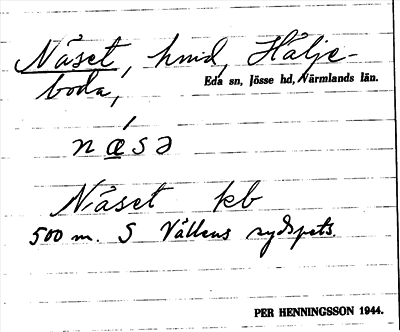 Näset, hmd, Hålje-
Eda sn, Jösse hd, Värmlands län.
boda,
næ´sə
Näset kb
500 m. S Vållens sydspets.
PER HENNINGSSON 1944.